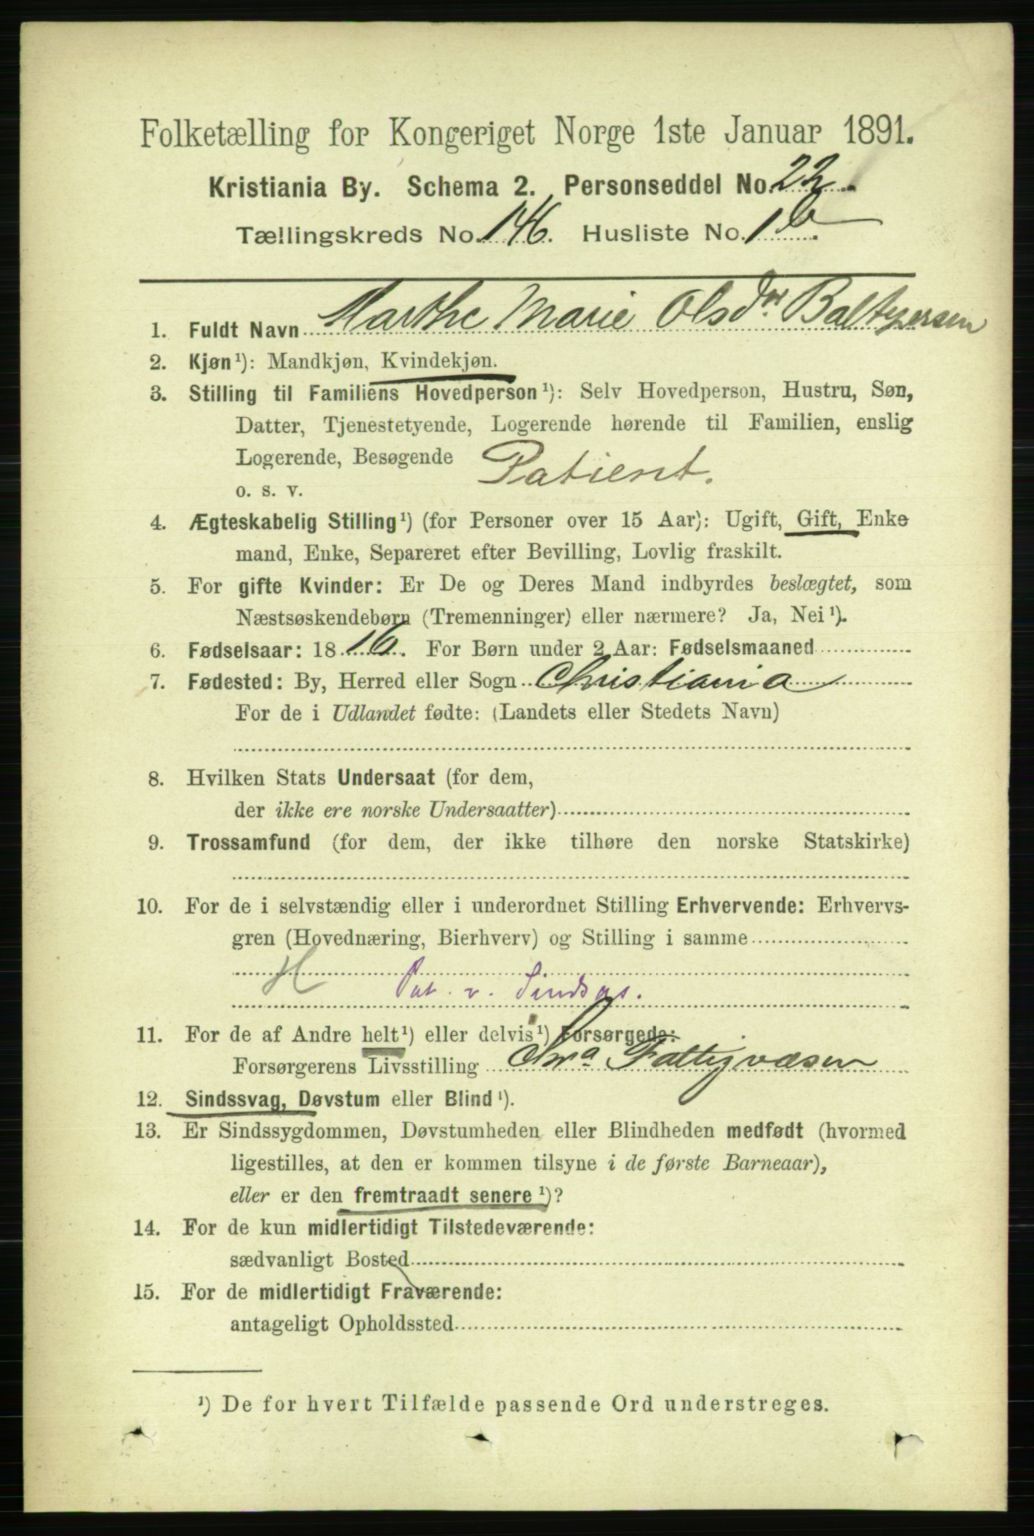 Folketælling for Kongeriget Norge 1ste Januar 1891.
Kristiania By. Schema 2. Personseddel No. 22.
Tællingskreds No. 146. Husliste No. 1 b.
1. Fuldt Navn Marthe Marie Olsdtr Baltzersen
2. Kjøn¹): Mandkjøn, Kvindekjøn.
3. Stilling til Familiens Hovedperson¹): Selv Hovedperson, Hustru, Søn,
Datter, Tjenestetyende, Logerende hørende til Familien, enslig
Logerende, Besøgende Patient.
o. s. v.
4. Ægteskabelig Stilling¹) (for Personer over 15 Aar): Ugift, Gift, Enke
mand, Enke, Separeret efter Bevilling, Lovlig fraskilt.
5. For gifte Kvinder: Er De og Deres Mand indbyrdes beslægtet, som
Næstsøskendebørn (Tremenninger) eller nærmere? Ja, Nei¹).
6. Fødselsaar: 1816. For Børn under 2 Aar: Fødselsmaaned
7. Fødested: By, Herred eller Sogn Christiania
For de i Udlandet fødte: (Landets eller Stedets Navn)
8. Hvilken Stats Undersaat (for dem,
der ikke ere norske Undersaatter)
9. Trossamfund (for dem, der ikke tilhøre den norske Statskirke)
10. For de i selvstændig eller i underordnet Stilling Erhvervende: Erhvervs-
gren (Hovednæring, Bierhverv) og Stilling i samme
H Pat. v. Sindsas.
11. For de af Andre helt¹) eller delvis¹) Forsørgede:
Forsørgerens Livsstilling Chra Fattigvæsen
12. Sindssvag, Døvstum eller Blind¹).
13. Er Sindssygdommen, Døvstumheden eller Blindheden medfødt (hvormed
ligestilles, at den er kommen tilsyne i de første Barneaar),
eller er den fremtraadt senere¹)?
14. For de kun midlertidigt Tilstedeværende:
sædvanligt Bosted
15. For de midlertidigt Fraværende:
antageligt Opholdssted
¹) De for hvert Tilfælde passende Ord understreges.